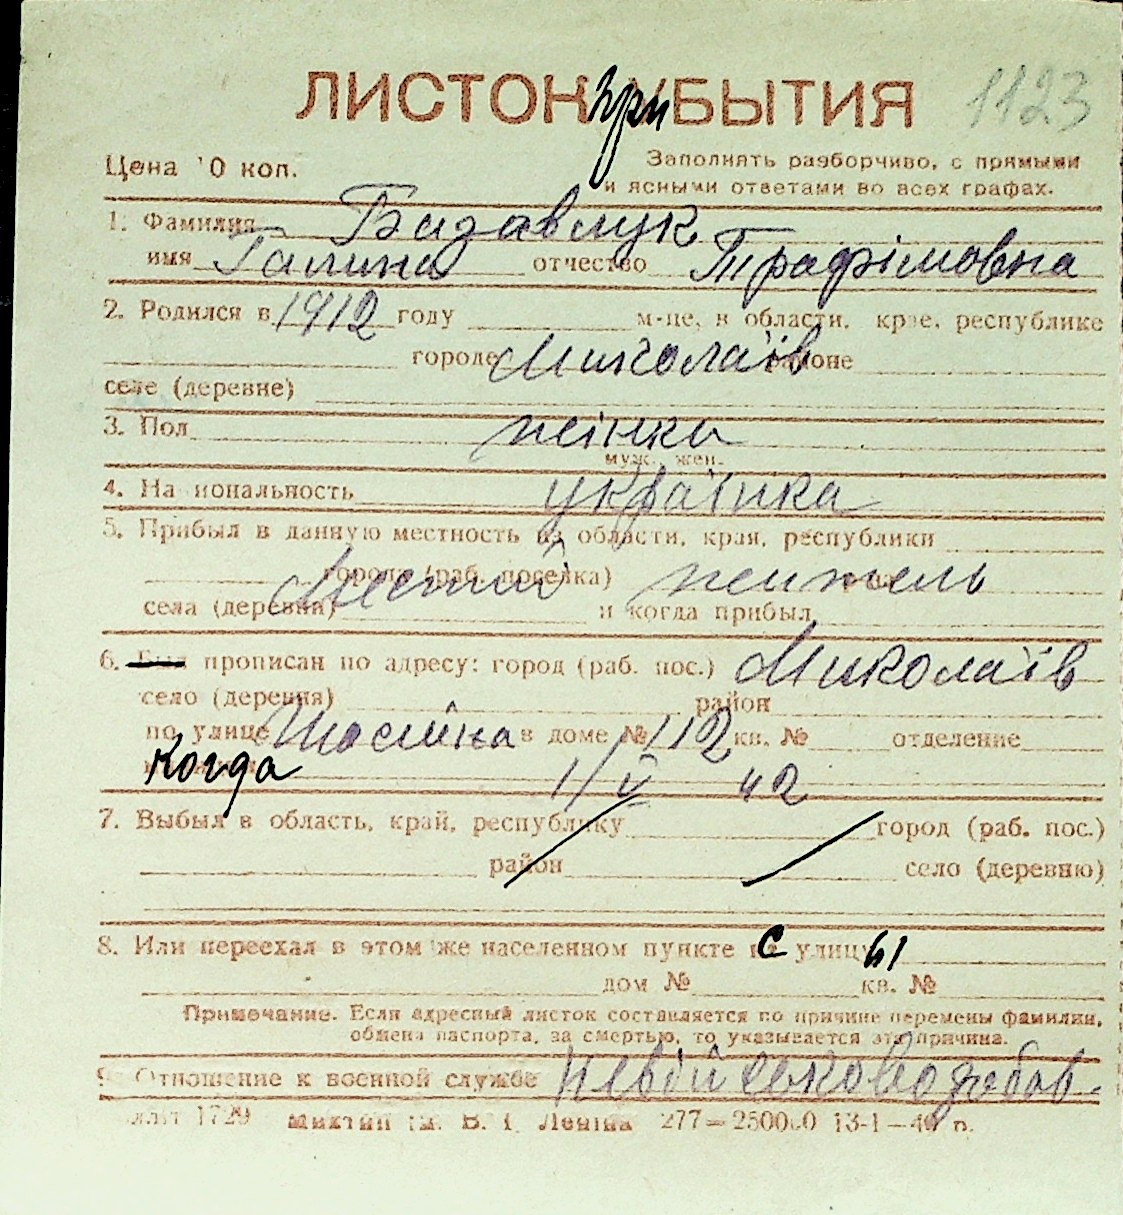 ЛИСТОК при БЫТИЯ 1123
Цена 10 коп. Заполнять разборчиво, с прямыми
и ясными ответами во всех графах.
1. Фамилия Базавлук
имя Галина отчество Трафімовна
2. Родился в 1912 году м-це, в области, крае, республике
городе Миколаїв районе
селе (деревне)
3. Пол жінка
муж. жен.
4. Национальность українка
5. Прибыл в данную местность из области, края, республики
города (раб. поселка) Местный житель
села (деревни) и когда прибыл
6. Был прописан по адресу: город (раб. пос.) Миколаїв
село (деревня) район
по улице в доме № 112 кв. № отделение
Когда 1/V 42
7. Выбыл в область, край, республику город (раб. пос.)
район село (деревню)
8. Или переехал в этом же населенном пункте с улицы
дом № кв. №
Примечание. Если адресный листок составляется по причине перемены фамилии,
обмена паспорта, за смертью, то указывается эта причина.
9. Отношение к военной службе невійськовозобов.
1729 В. І. Леніна 277—250000 13-1—40 р.